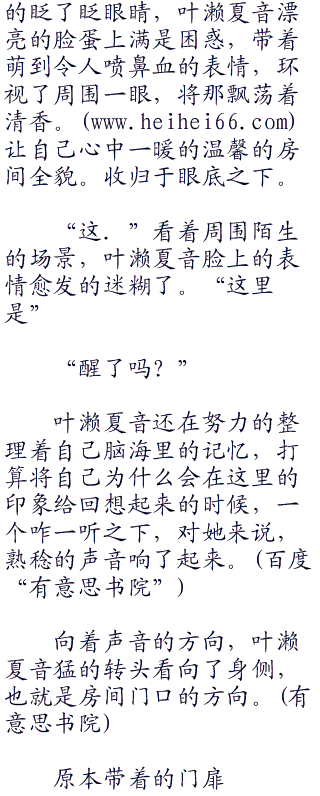 的眨了眨眼睛，叶濑夏音漂
亮的脸蛋上满是困惑，带着
萌到令人喷鼻血的表情，环
视了周围一眼，将那飘荡着
清香。(www.heihei66.com)
让自己心中一暖的温馨的房
间全貌。收归于眼底之下。
“这．”看着周围陌生
的场景，叶濑夏音脸上的表
情愈发的迷糊了。“这里
是”
“醒了吗？”
叶濑夏音还在努力的整
理着自己脑海里的记忆，打
算将自己为什么会在这里的
印象给回想起来的时候，一
个咋一听之下，对她来说，
熟稔的声音响了起来。(百度
“有意思书院”)
向着声音的方向，叶濑
夏音猛的转头看向了身侧，
也就是房间门口的方向。(有
意思书院)
原本带着的门扉